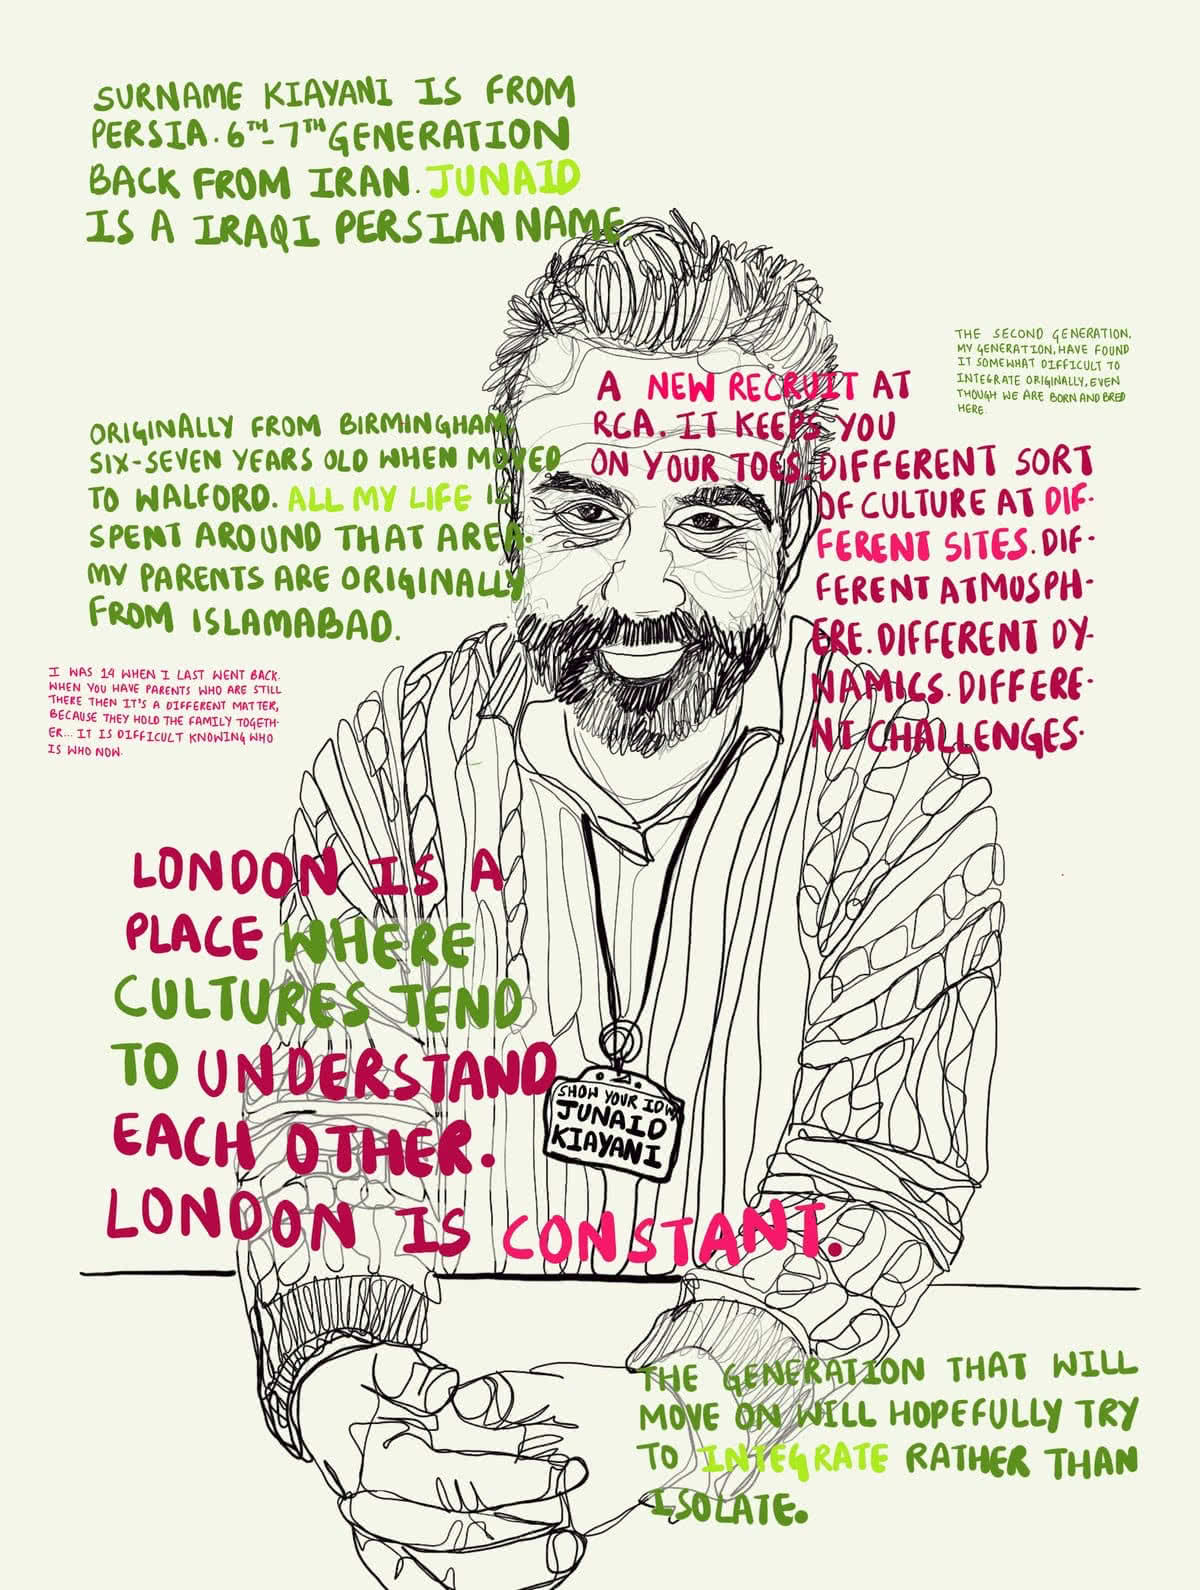 SURNAME KIAYANI IS FROM
PERSIA. 6TH-7TH GENERATION
BACK FROM IRAN. JUNAID
IS A IRAQI PERSIAN NAME.
THE SECOND GENERATION,
MY GENERATION, HAVE FOUND
IT SOMEWHAT DIFFICULT TO
INTEGRATE ORIGINALLY, EVEN
THOUGH WE ARE BORN AND BRED
HERE
A NEW RECRUIT AT
RCA. IT KEEPS YOU
ON YOUR TOES. DIFFERENT SORT
OF CULTURE AT DIF-
FERENT SITES. DIF-
FERENT ATMOSPH-
ERE. DIFFERENT DY-
NAMICS. DIFFERE-
NT CHALLENGES.
ORIGINALLY FROM BIRMINGHAM,
SIX-SEVEN YEARS OLD WHEN MOVED
TO WALFORD. ALL MY LIFE IS
SPENT AROUND THAT AREA.
MY PARENTS ARE ORIGINALLY
FROM ISLAMABAD.
I WAS 19 WHEN I LAST WENT BACK.
WHEN YOU HAVE PARENTS WHO ARE STILL
THERE THEN IT'S A DIFFERENT MATTER,
BECAUSE THEY HOLD THE FAMILY TOGETH-
ER... IT IS DIFFICULT KNOWING WHO
IS WHO NOW.
LONDON IS A
PLACE WHERE
CULTURES TEND
TO UNDERSTAND
EACH OTHER.
LONDON IS CONSTANT.
SHOW YOUR ID
JUNAID
KIAYANI
THE GENERATION THAT WILL
MOVE ON WILL HOPEFULLY TRY
TO INTEGRATE RATHER THAN
ISOLATE.